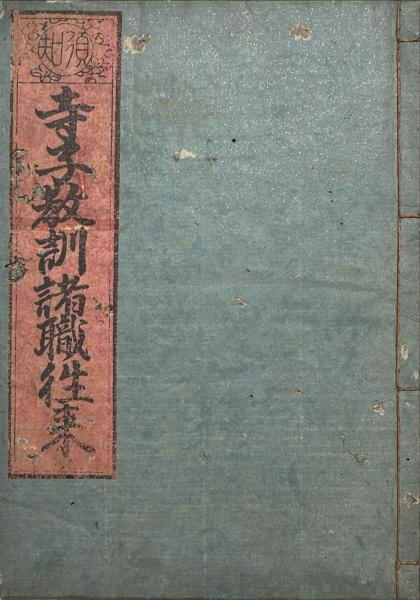 須知
寺子教訓諸職往来